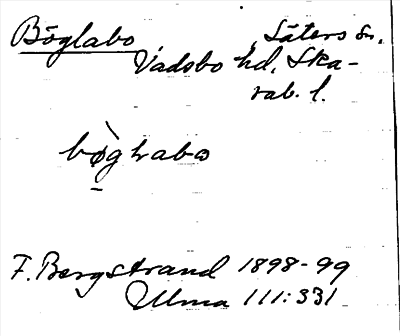 Böglabo Säters sn.
Vadsbo hd. Ska-
rab. l.
bø̀glrabo
F. Bergstrand 1898-99
Ulma 111:331